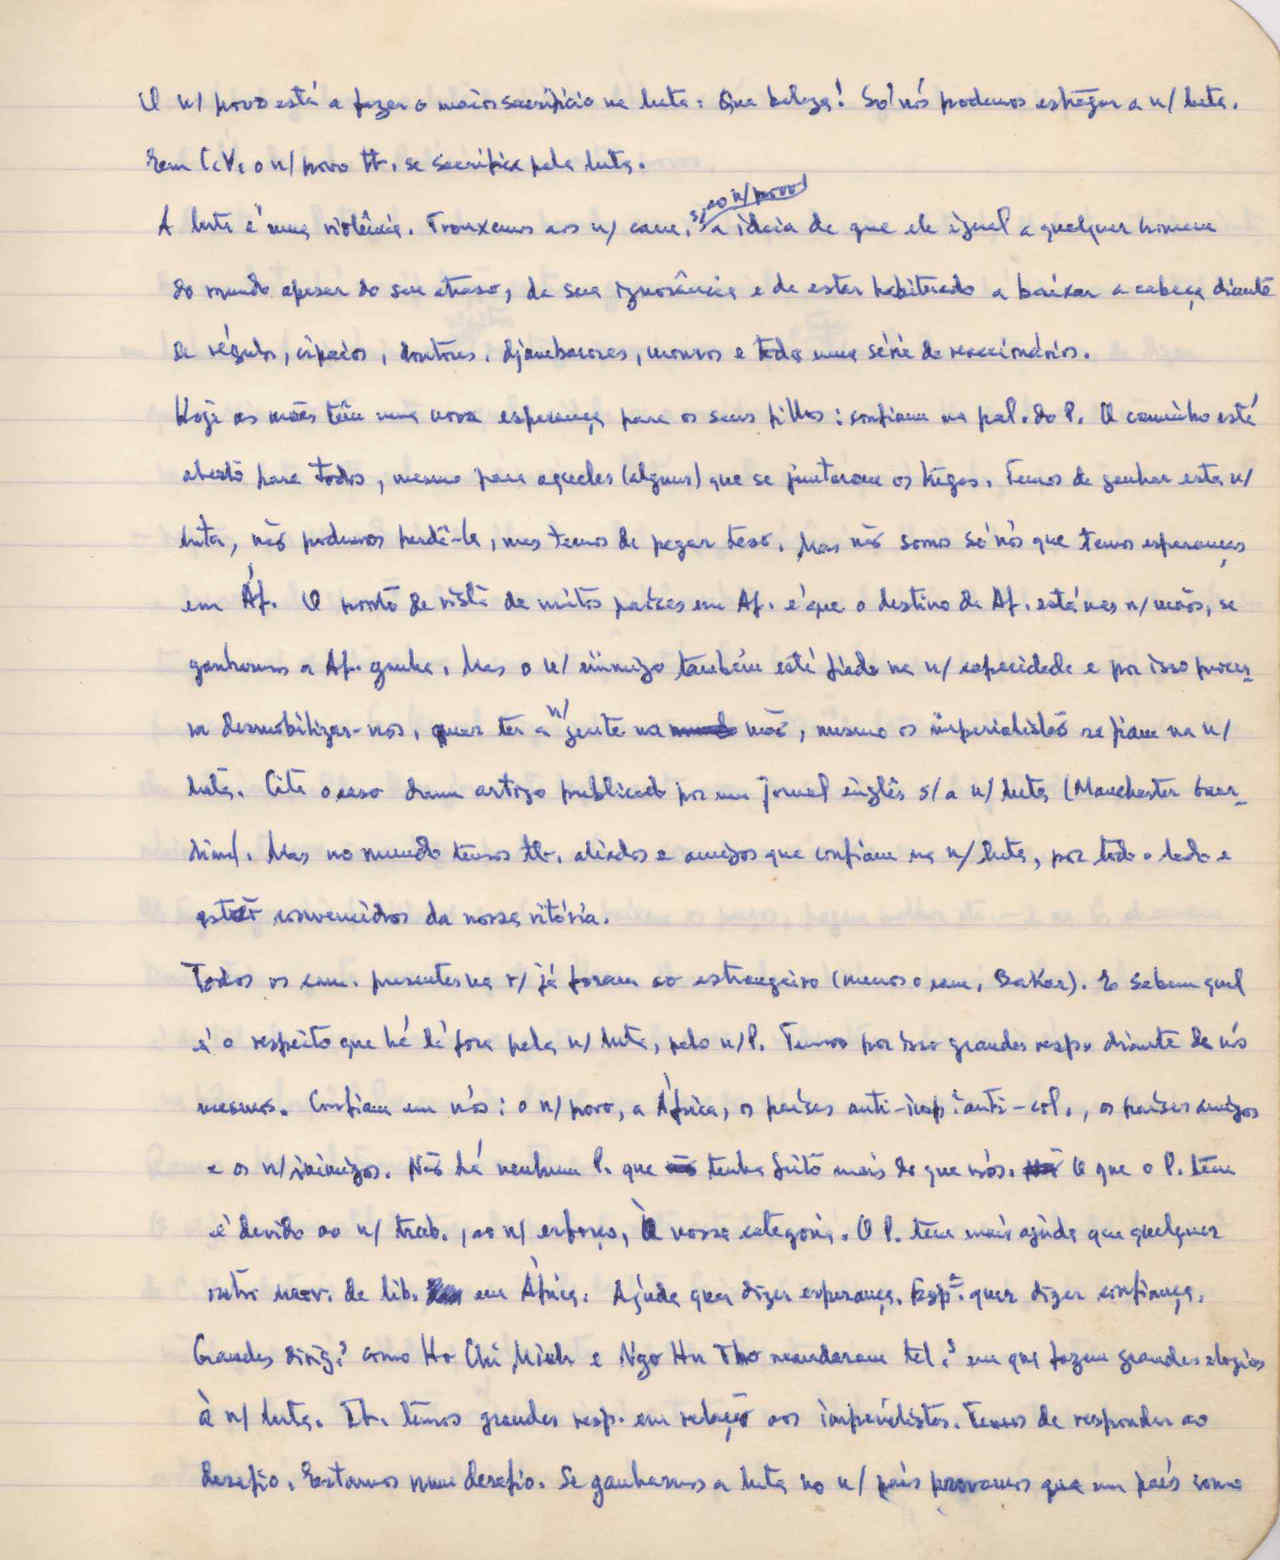 O n/ povo está a fazer o maior sacrifício na luta. Que beleza! Só nós podemos estragar a n/ luta.
Em C.V. o n/ povo tb. se sacrifica pela luta.
s/ ao n/ povo/
A luta é uma violência. Trouxemos aos n/ cam. a ideia de que ele igual a qualquer homem
do mundo apesar do seu atraso, da sua ignorância e de estar habituado a baixar a cabeça diante
de régulos, cipaios, doutores, djambacoses, mouros e toda uma série de reaccionários.
Hoje as mães têm uma nova esperança para os seus filhos: confiam na pal. do P. O caminho está
aberto para todos, mesmo para aqueles (alguns) que se juntaram os tugas. Temos de ganhar esta n/
luta, não podemos perdê-la, mas temos de pegar teso. Mas não somos só nós que temos esperanças
em Áf. O ponto de vista de muitos países em Af. é que o destino da Af. está nas n/ mãos, se
ganharmos a Af. ganha. Mas o n/ inimigo também está fiado na n/ capacidade e por isso procu-
ra desmobilizar-nos, quer ter a n/ gente na mão, mesmo os imperialistas se fiam na n/
luta. Cita o caso dum artigo publicado por um jornal inglês s/ a n/ luta (Manchester Guar-
dian). Mas no mundo temos tb. aliados e amigos que confiam na n/ luta, por todo o lado e
estão convencidos da nossa vitória.
Todos os cam. presentes na r/ já foram ao estrangeiro (menos o cam. Bakar). E sabem qual
é o respeito que há lá fora pela n/ luta, pelo n/ P. Temos por isso grandes resp. diante de nós
mesmos. Confiam em nós: o n/ povo, a África, os países anti-imp. anti-col., os países amigos
e os n/ inimigos. Não há nenhum P. que tenha feito mais do que nós. O que o P. tem
é devido ao n/ trab., ao n/ esforço, à nossa categoria. O P. tem mais ajuda que qualquer
outro mov. de lib. em África. Ajuda quer dizer esperança. Esp.ª quer dizer confiança.
Grandes dirig.s como Ho Chi Minh e Ngo Hu Tho mandaram tel.s em que fazem grandes elogios
à n/ luta. Tb. temos grandes resp. em relação aos imperialistas. Temos de responder ao
desafio. Estamos num desafio. Se ganharmos a luta no n/ país provamos que um país como